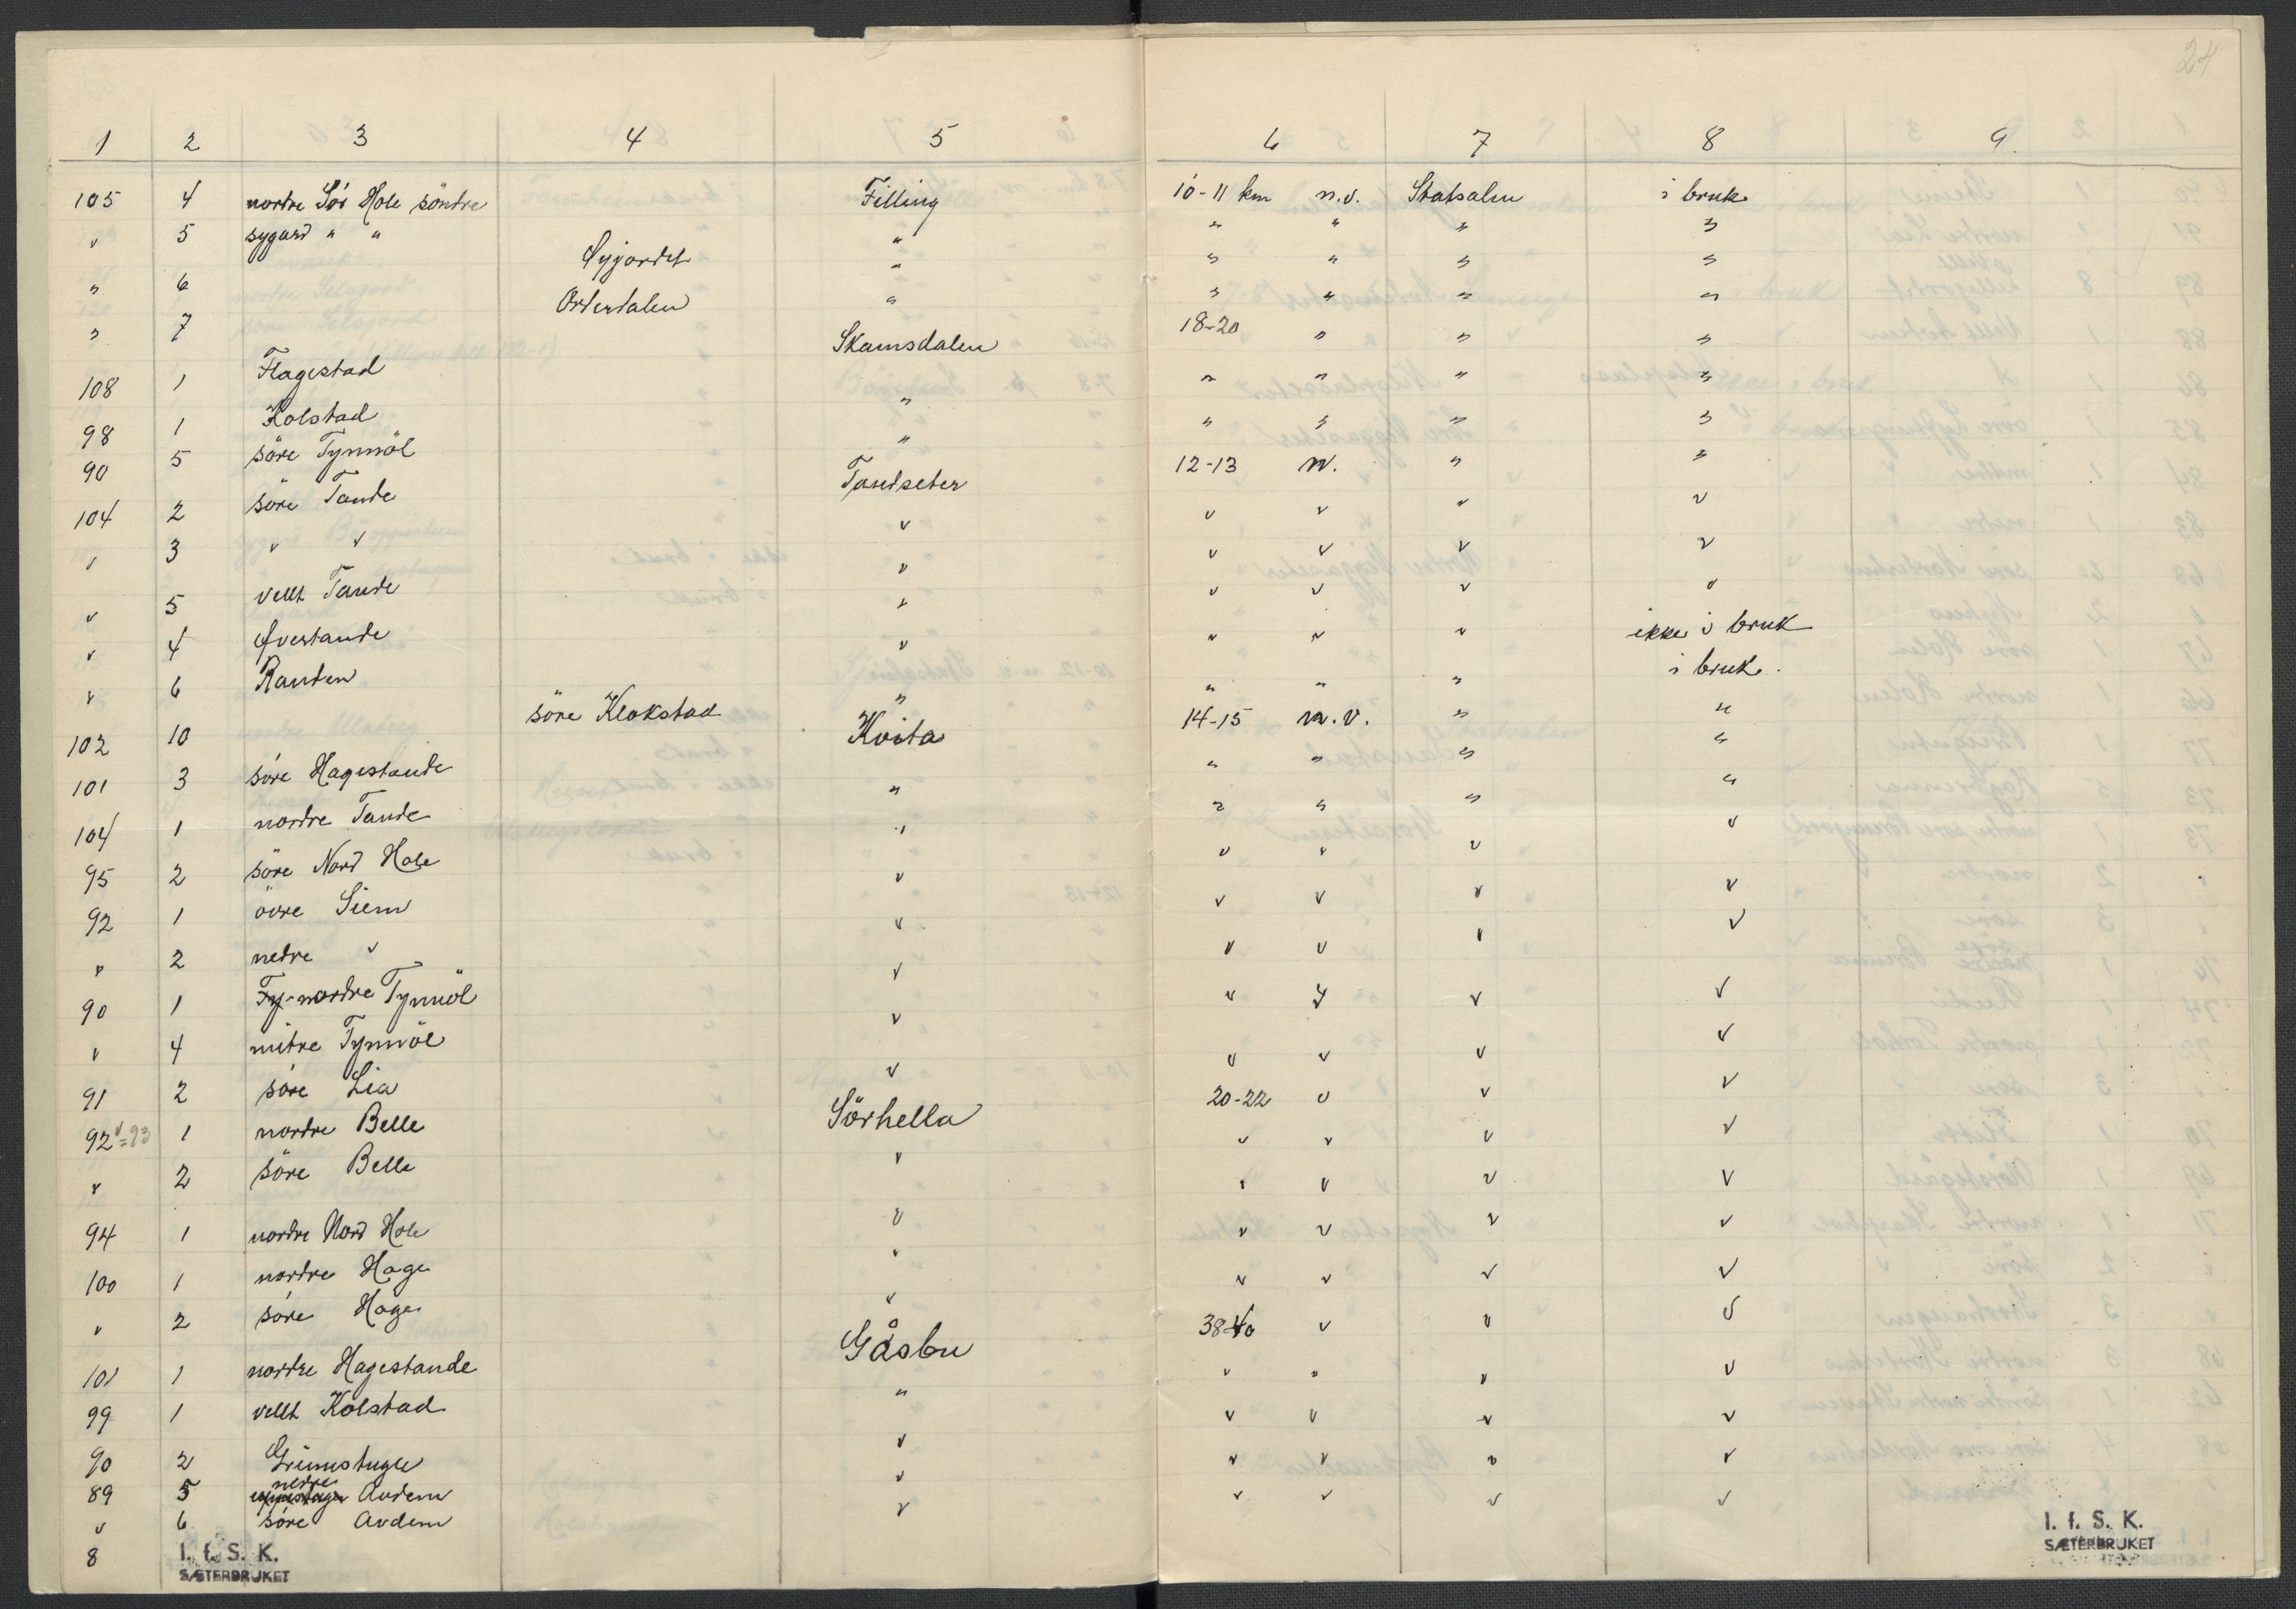 24
1 2 3 4 5 6 7 8 9.
105 4 nordre Sör Hole söndre Filling 10-11 km n.v. Statsalm i bruk
" 5 sygard " " " " " " "
" 6 Sygardet " " " " "
" 7 Östertalen " " " " "
108 1 Flagestad Skamsdalen 18-20 " " "
98 1 Kolstad " " " " "
90 5 söre Tynnöl " " " " "
104 2 söre Tande Tandseter 12-13 n. " "
" 3 " " " " " " "
" 5 vellt Tande " " " " "
" 4 Övertande " " " " "
" 6 Randen " " " " ikke i bruk
102 10 söre Klokstad " " " " i bruk.
101 3 söre Hagestande Kvita 14-15 n.v. " "
104 1 nordre Tande " " " " "
95 2 söre Nord Hole " " " " "
92 1 övre Siem " " " " "
" 2 nedre " " " " " "
90 1 Fy-nordre Tynnöl " " " " "
" 4 mitre Tynnöl " " " " "
91 2 söre Lia " " " " "
92 = 93 1 nordre Belle Sörhella 20-22 " " "
" 2 söre Belle " " " " "
94 1 nordre Nord Hole " " " " "
100 1 nordre Hage " " " " "
" 2 söre Hage " " " " "
101 1 nordre Hagestande Gåsbu 38-40 " " "
99 1 vellt Kolstad " " " " "
90 2 Grimstugu " " " " "
89 5 nedre Avdem " " " " "
" 6 söre Avdem " " " " "
8
I. f. S. K.
SÆTERBRUKET
I. f. S. K.
SÆTERBRUKET